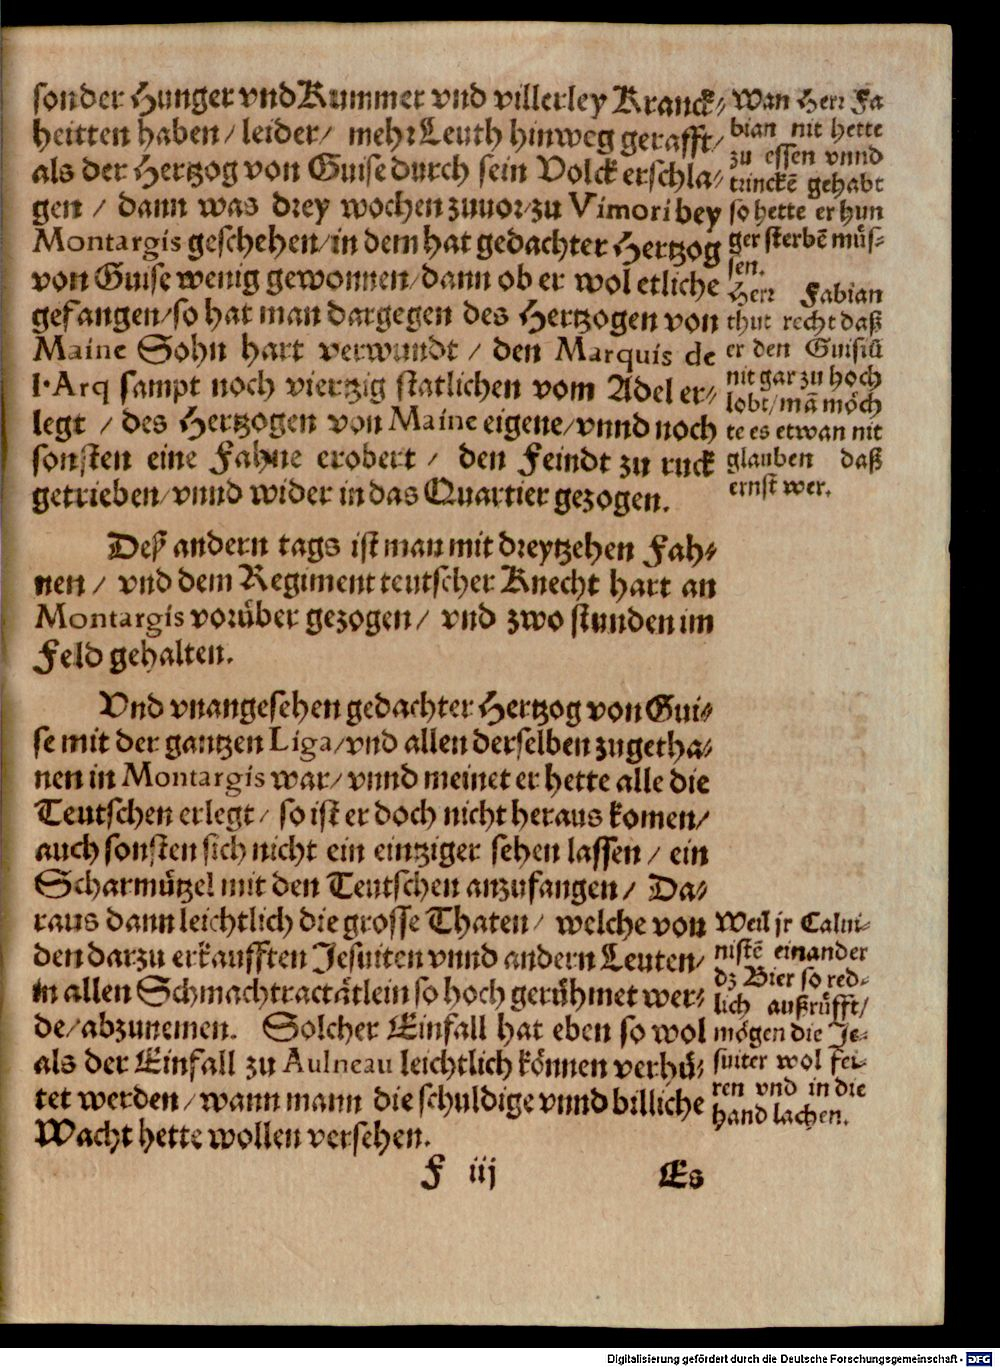 sonder Hunger vnd Kummer vnd villerley Kranck⸗
heitten haben / leider / mehr Leuth hinweg gerafft /
als der Hertzog von Guise durch sein Volck erschla⸗
gen / dann was drey wochen zuuor / zu Vimori bey
Montargis geschehen / in dem hat gedachter Hertzog
von Guise wenig gewonnen / dann ob er wol etliche
gefangen / so hat man dargegen des Hertzogen von
Maine Sohn hart verwundt / den Marquis de
l'Arq sampt noch viertzig statlichen vom Adel er⸗
legt / des Hertzogen von Maine eigene / vnnd noch
sonsten eine Fahne erobert / den Feindt zu ruck
getrieben / vnnd wider in das Quartier gezogen.
Wan Herr Fa
bian nit hette
zu essen vnnd
trinckē gehabt
so hette er hun
ger sterbē müs⸗
sen.
Herr Fabian
thut recht daß
er den Guisiū
nit gar zu hoch
lobt / mā möch
te es etwan nit
glauben daß
ernst wer.
Deß andern tags ist man mit dreytzehen Fah⸗
nen / vnd dem Regiment teutscher Knecht hart an
Montargis vorüber gezogen / vnd zwo stunden im
Feld gehalten.
Vnd vnangesehen gedachter Hertzog von Gui⸗
se mit der gantzen Liga / vnd allen derselben zugetha⸗
nen in Montargis war / vnnd meinet er hette alle die
Teutschen erlegt / so ist er doch nicht heraus komen /
auch sonsten sich nicht ein eintziger sehen lassen / ein
Scharmützel mit den Teutschen anzufangen / Da⸗
raus dann leichtlich die grosse Thaten / welche von
den darzu erkaufften Jesuiten vnnd andern Leuten /
in allen Schmachtractätlein so hoch gerühmet wer⸗
de / abzunemen. Solcher Einfall hat eben so wol
als der Einfall zu Aulneau leichtlich können verhü⸗
tet werden / wann mann die schuldige vnnd billiche
Wacht hette wollen versehen.
Weil jr Calui⸗
nistē einander
dz Bier so red⸗
lich außrüfft /
mögen die Je⸗
suiter wol fei⸗
ren vnd in die
hand lachen.
F iij
Es
Digitalisierung gefördert durch die Deutsche Forschungsgemeinschaft - DFG